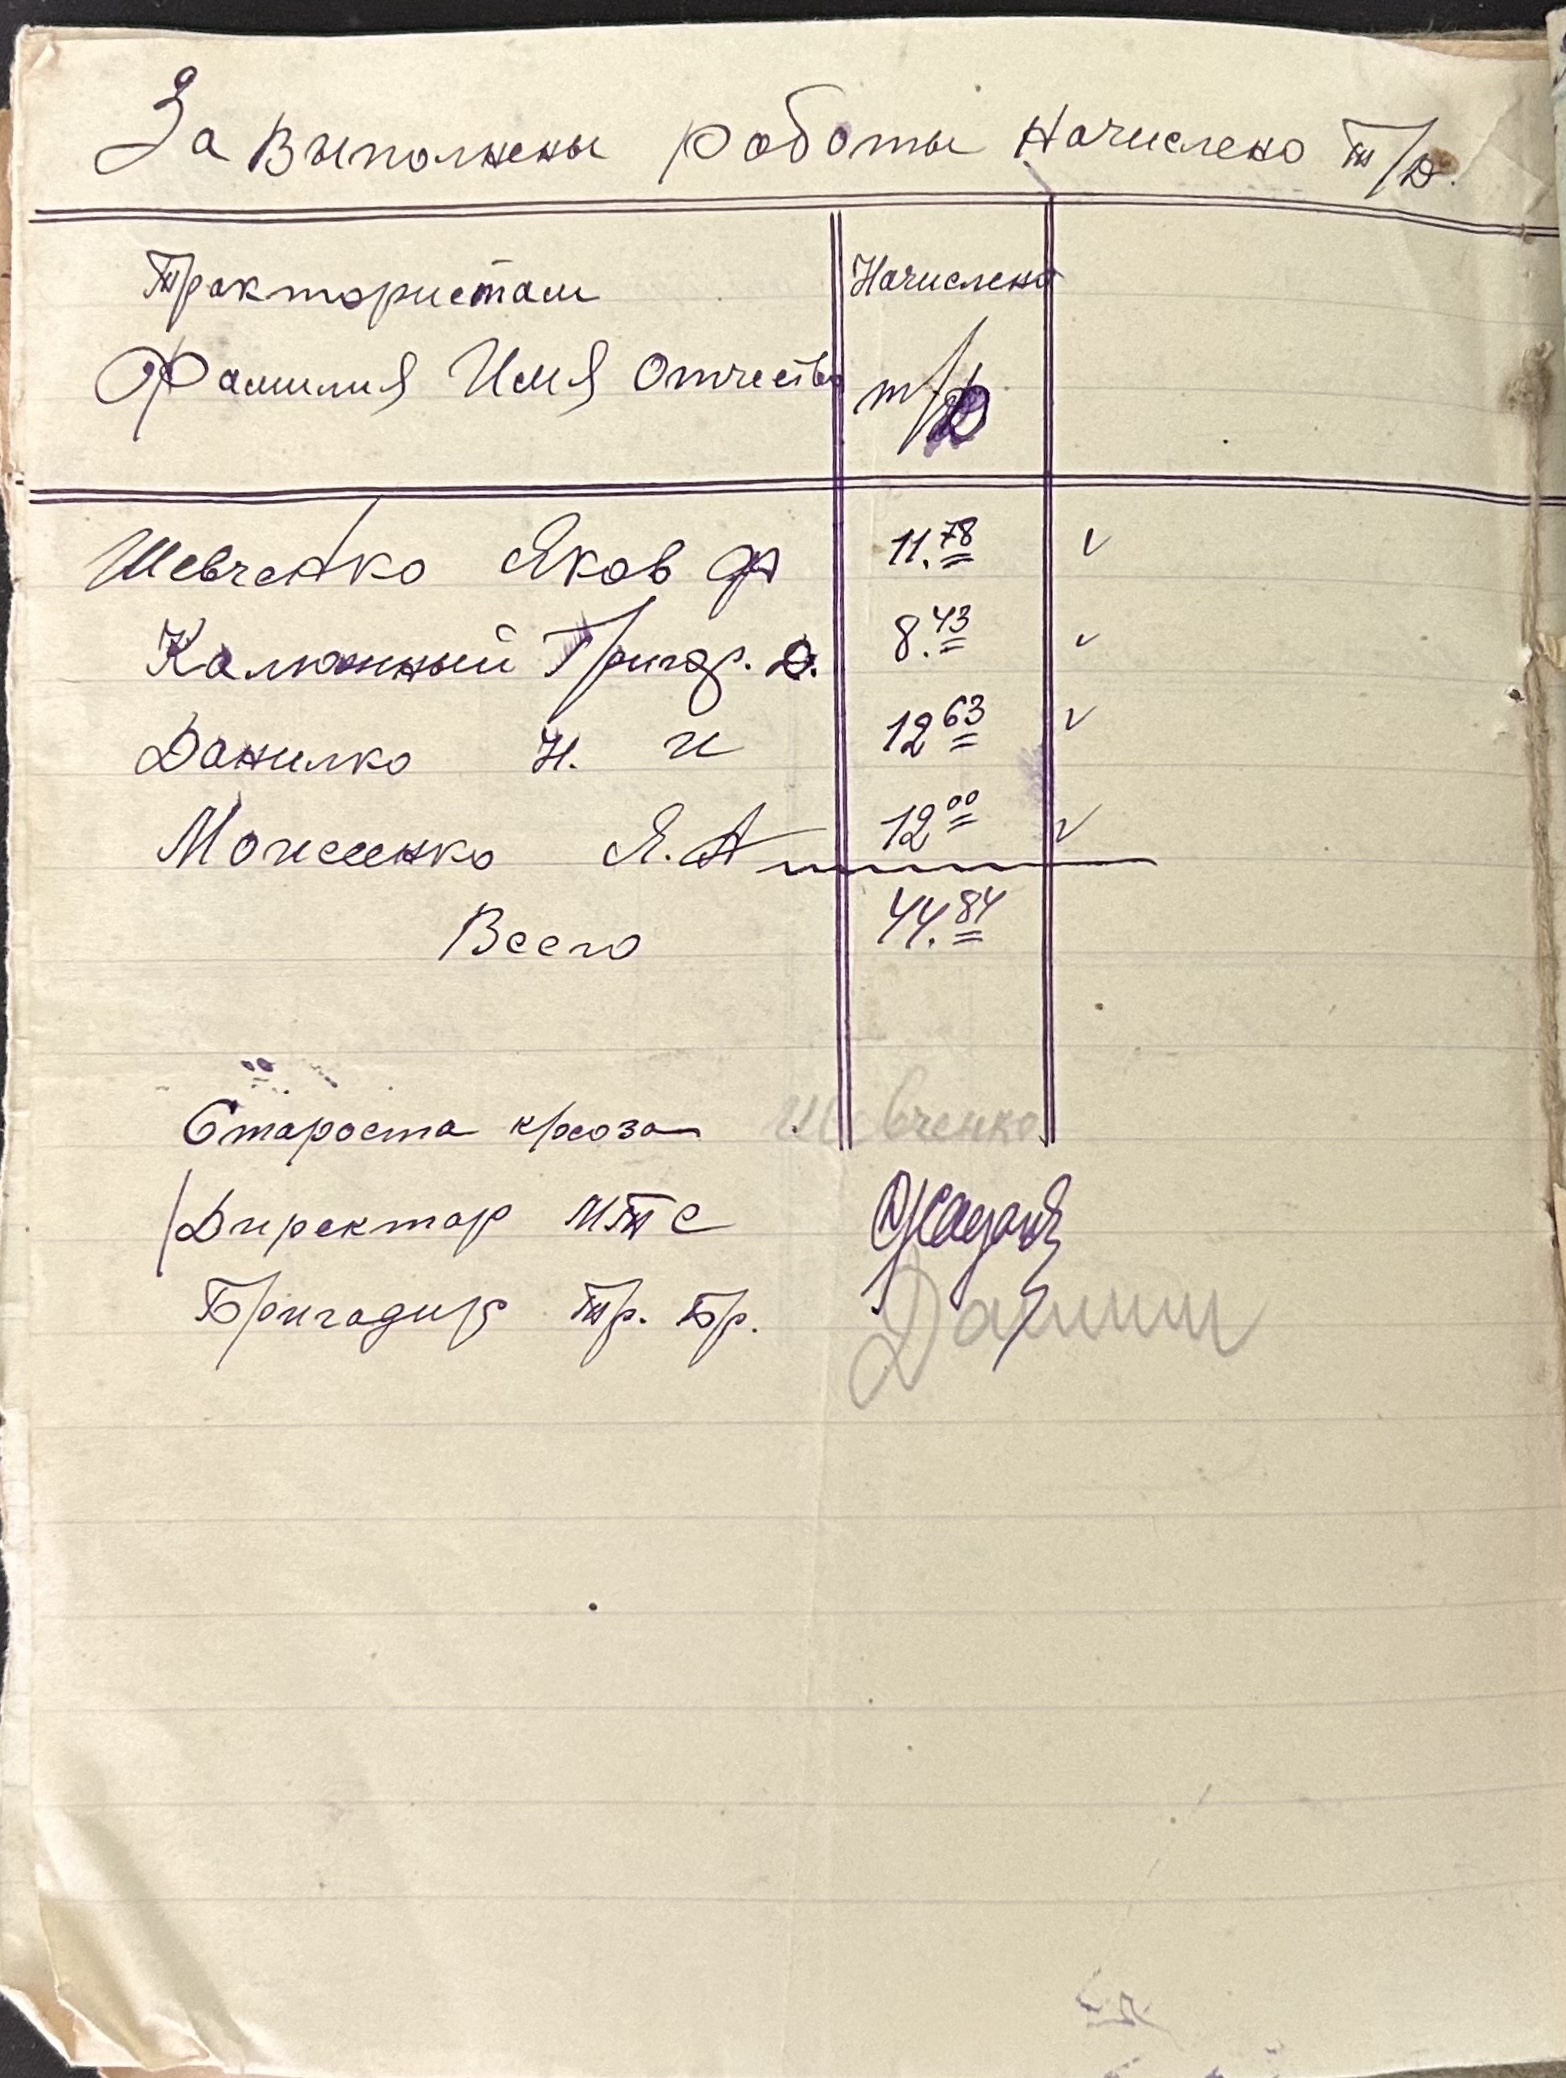 За выполнены работы начислено т/д.
Трактористам Начислено
Фамилия Имя Отчество т/д
Шевченко Яков Ф 11.78 ✓
Калюжный Григор. Д. 8.43 ✓
Данилко Н. И 12 63 ✓
Моисеенко Я. А 12 00 ✓
Всего 44.84
Староста к/юоза Шевченко
Директор МТС
Бригадир тр. бр.